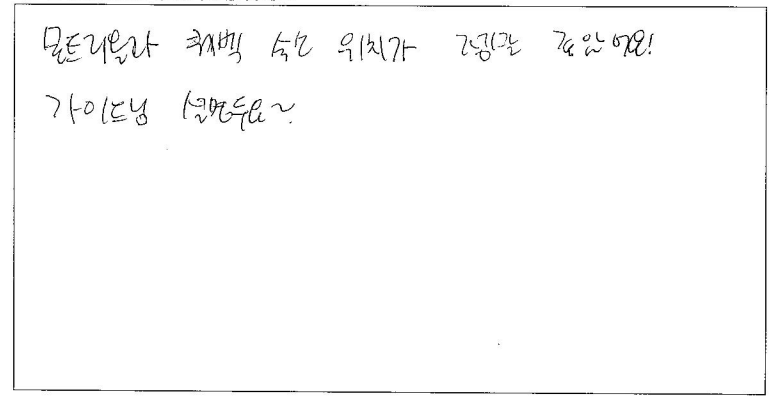 몬트리올과 퀘벡 숙소 위치가 정말 좋았어요!
가이드님 설명두요~